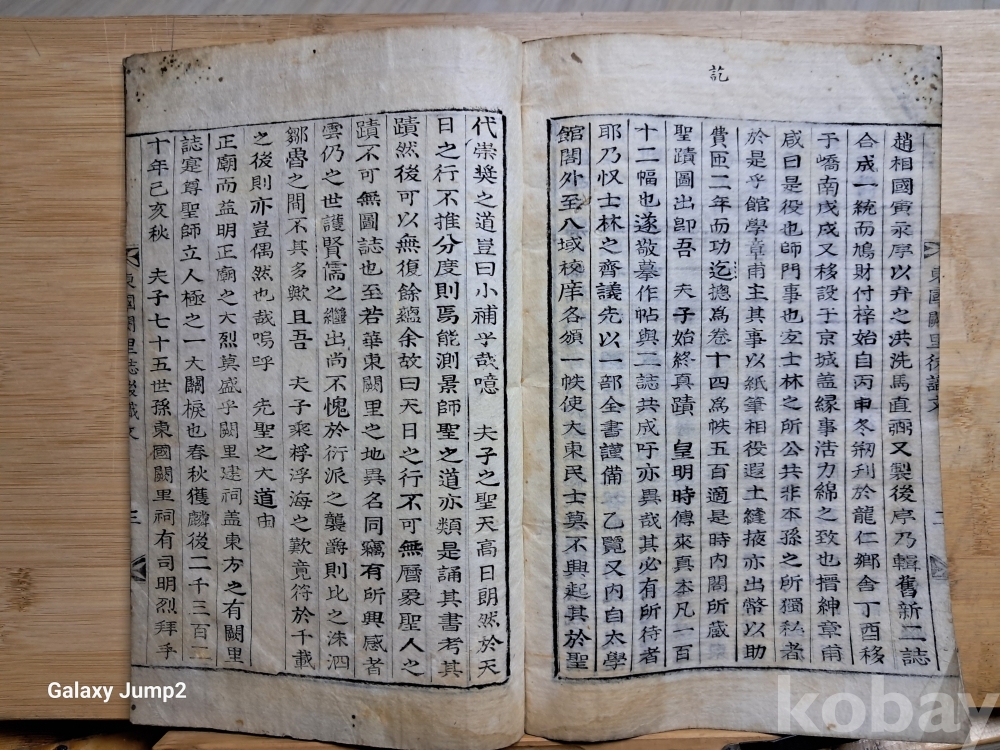 訖
趙相國寅永序以弁之洪洗馬直弼又製後序乃輯舊新二誌
合成一統而鳩財付梓始自丙申冬剏刊於龍仁鄕舍丁酉移
于嶠南戊戌又移設于京城盖緣事活力綿之致也搢紳章甫
咸曰是役也師門事也寔士林之所公共非本孫之所獨私者
於是乎館學章甫主其事以紙筆相役遐土縫掖亦出幣以助
費匝二年而功迄摠爲卷十四爲帙五百適是時內閣所蔵
聖蹟圖出卽吾 夫子始終真蹟 皇明時傳來真本凡一百
十二幅也遂敬摹作帖與二誌共成吁亦異哉其必有所待者
耶乃収士林之齊議先以一部全書謹備 乙覽又內自太學
館閣外至八域校庠各頒一帙使大東民士莫不興起其於聖
東國闕里後識文
二
代崇奬之道豈曰小補乎哉噫 夫子之聖天高日朗然於天
日之行不推分度則焉能測景師聖之道亦類是誦其書考其
蹟然後可以無復餘蘊余故曰天日之行不可無曆象聖人之
蹟不可無圖誌也至若華東闕里之地異名同竊有所興感者
雲仍之世護賢儒之繼出尚不愧於衍派之襲爵則比之洙泗
鄒魯之間不其多歟且吾 夫子乘桴浮海之歎竟符於千載
之後則亦豈偶然也哉嗚呼 先聖之大道由
正廟而益明正廟之大烈莫盛乎闕里建祠盖東方之有闕里
誌寔尊聖師立人極之一大關棙也春秋獲麟後二千三百二
十年己亥秋 夫子七十五世孫東國闕里祠有司明烈拜手
東國闕里誌後識文
三
Galaxy Jump2
kobay